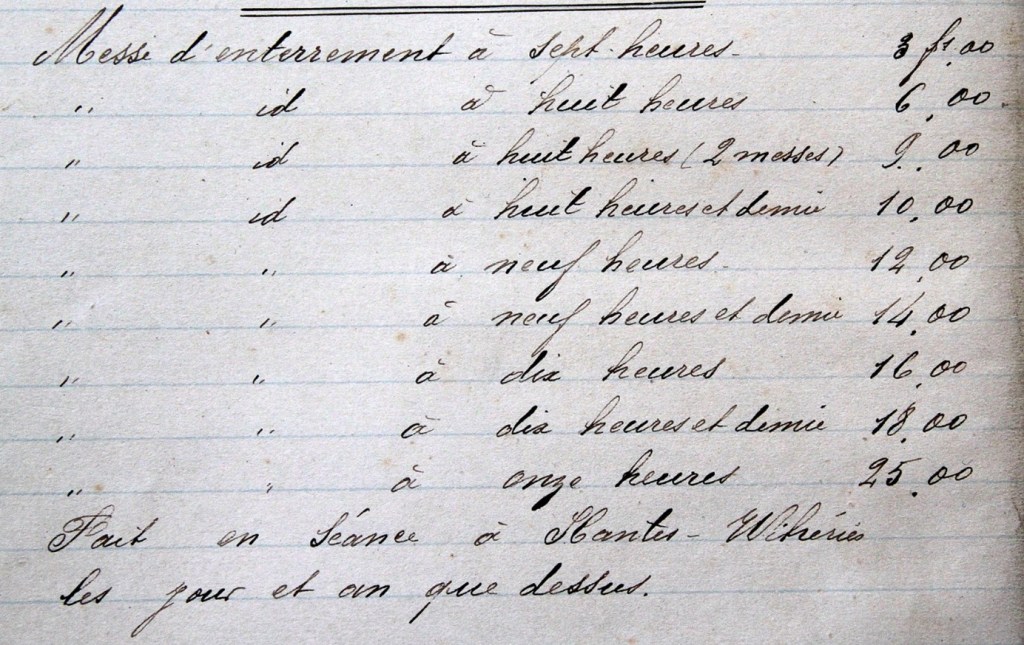 Messe d'enterrement à sept heures - 3 frs,00
" id à huit heures 6,00
" id à huit heures (2 messes) 9,00
" id à huit heures et demie 10,00
" " à neuf heures 12,00
" " à neuf heures et demie 14,00
" " à dix heures 16,00
" " à dix heures et demie 18,00
" " à onze heures 25,00
Fait en séance à Hantes-Wihéries
les jour et an que dessus.